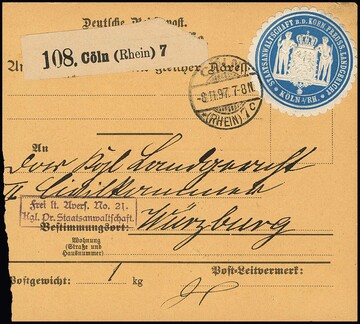 Deutsche Reichspost.
108. Cöln (Rhein) 7
STAATSANWALTSCHAFT B. D. KÖN. PREUSS. LANDGERICHT
* KÖLN a/RH. *
-8.11.97. 7-8N.
*(RHEIN) 7c
An
das Kgl. Landgericht
II Civilkammer
Frei lt. Avers. No. 21.
Kgl. Pr. Staatsanwaltschaft.
Bestimmungsort: Würzburg
Wohnung
(Straße und
Hausnummer)
Postgewicht: 1 kg
Post-Leitvermerk: